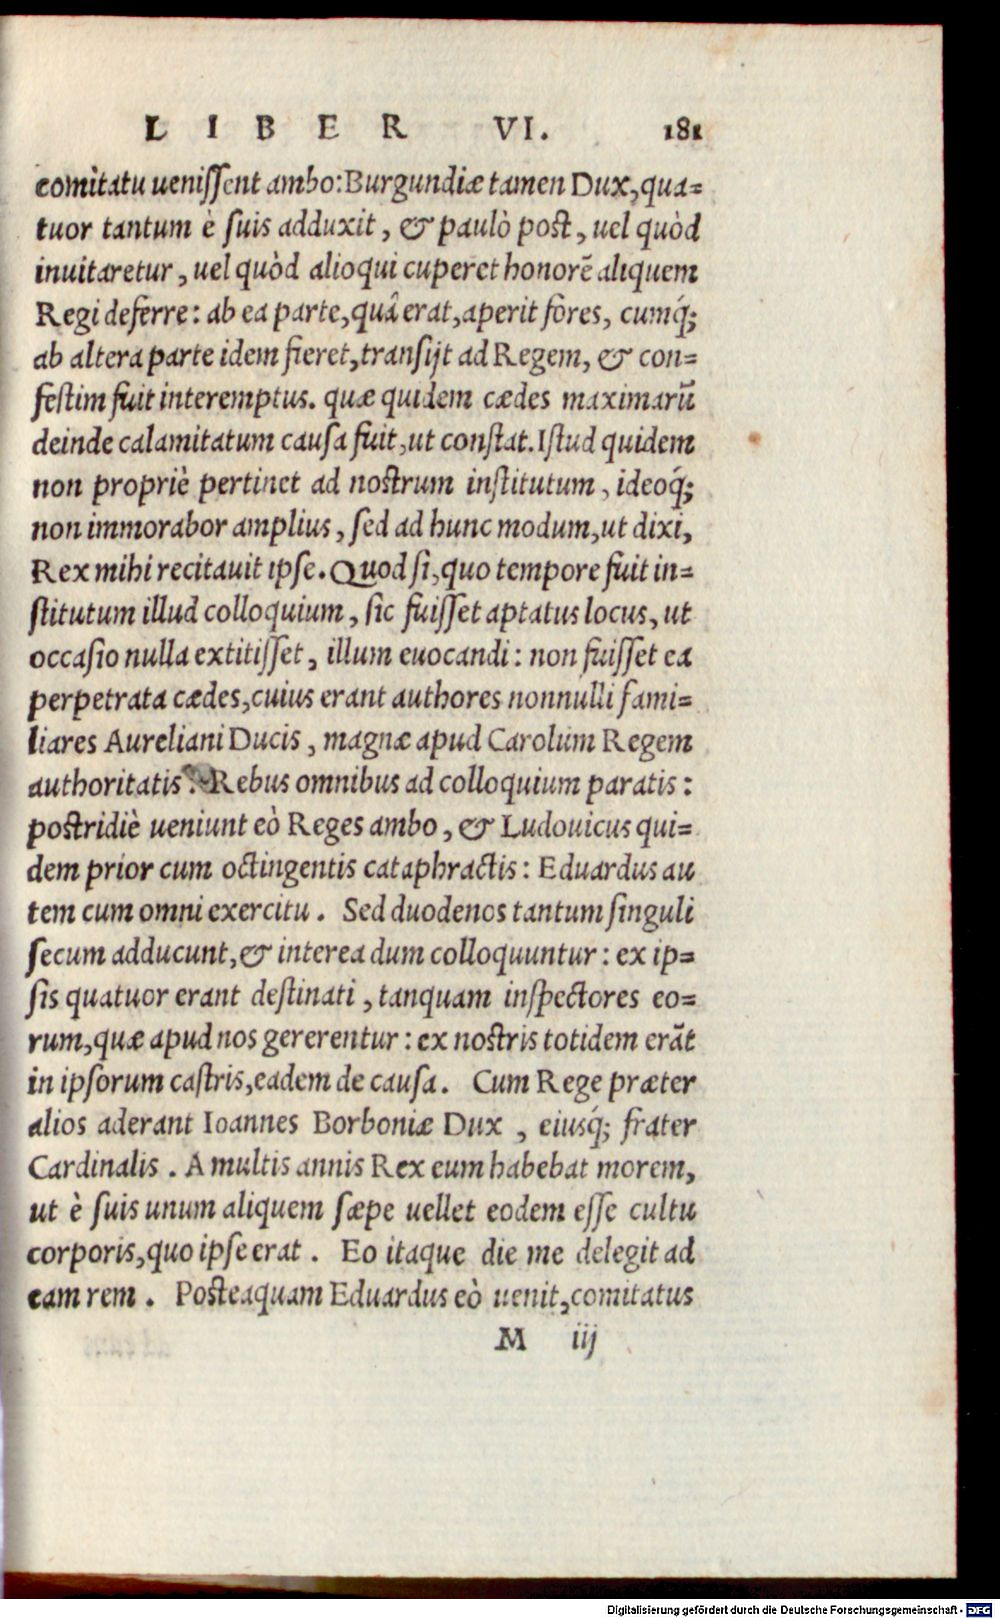 LIBER VI. 181
comitatu uenissent ambo: Burgundiæ tamen Dux, qua-
tuor tantum è suis adduxit, & paulò post, uel quòd
inuitaretur, uel quòd alioqui cuperet honorē aliquem
Regi deferre: ab ea parte, quâ erat, aperit fores, cumq́;
ab altera parte idem fieret, transijt ad Regem, & con-
festim fuit interemptus. quæ quidem cædes maximarū
deinde calamitatum causa fuit, ut constat. Istud quidem
non propriè pertinet ad nostrum institutum, ideoq́;
non immorabor amplius, sed ad hunc modum, ut dixi,
Rex mihi recitauit ipse. Quod si, quo tempore fuit in-
stitutum illud colloquium, sic fuisset aptatus locus, ut
occasio nulla extitisset, illum euocandi: non fuisset ea
perpetrata cædes, cuius erant authores nonnulli fami-
liares Aureliani Ducis, magnæ apud Carolum Regem
authoritatis. Rebus omnibus ad colloquium paratis:
postridiè ueniunt eò Reges ambo, & Ludouicus qui-
dem prior cum octingentis cataphractis: Eduardus au
tem cum omni exercitu. Sed duodenos tantum singuli
secum adducunt, & interea dum colloquuntur: ex ip-
sis quatuor erant destinati, tanquam inspectores eo-
rum, quæ apud nos gererentur: ex nostris totidem erāt
in ipsorum castris, eadem de causa. Cum Rege præter
alios aderant Ioannes Borboniæ Dux, eiusq́; frater
Cardinalis. A multis annis Rex eum habebat morem,
ut è suis unum aliquem sæpe uellet eodem esse cultu
corporis, quo ipse erat. Eo itaque die me delegit ad
eam rem. Posteaquam Eduardus eò uenit, comitatus
M iij
Digitalisierung gefördert durch die Deutsche Forschungsgemeinschaft - DFG